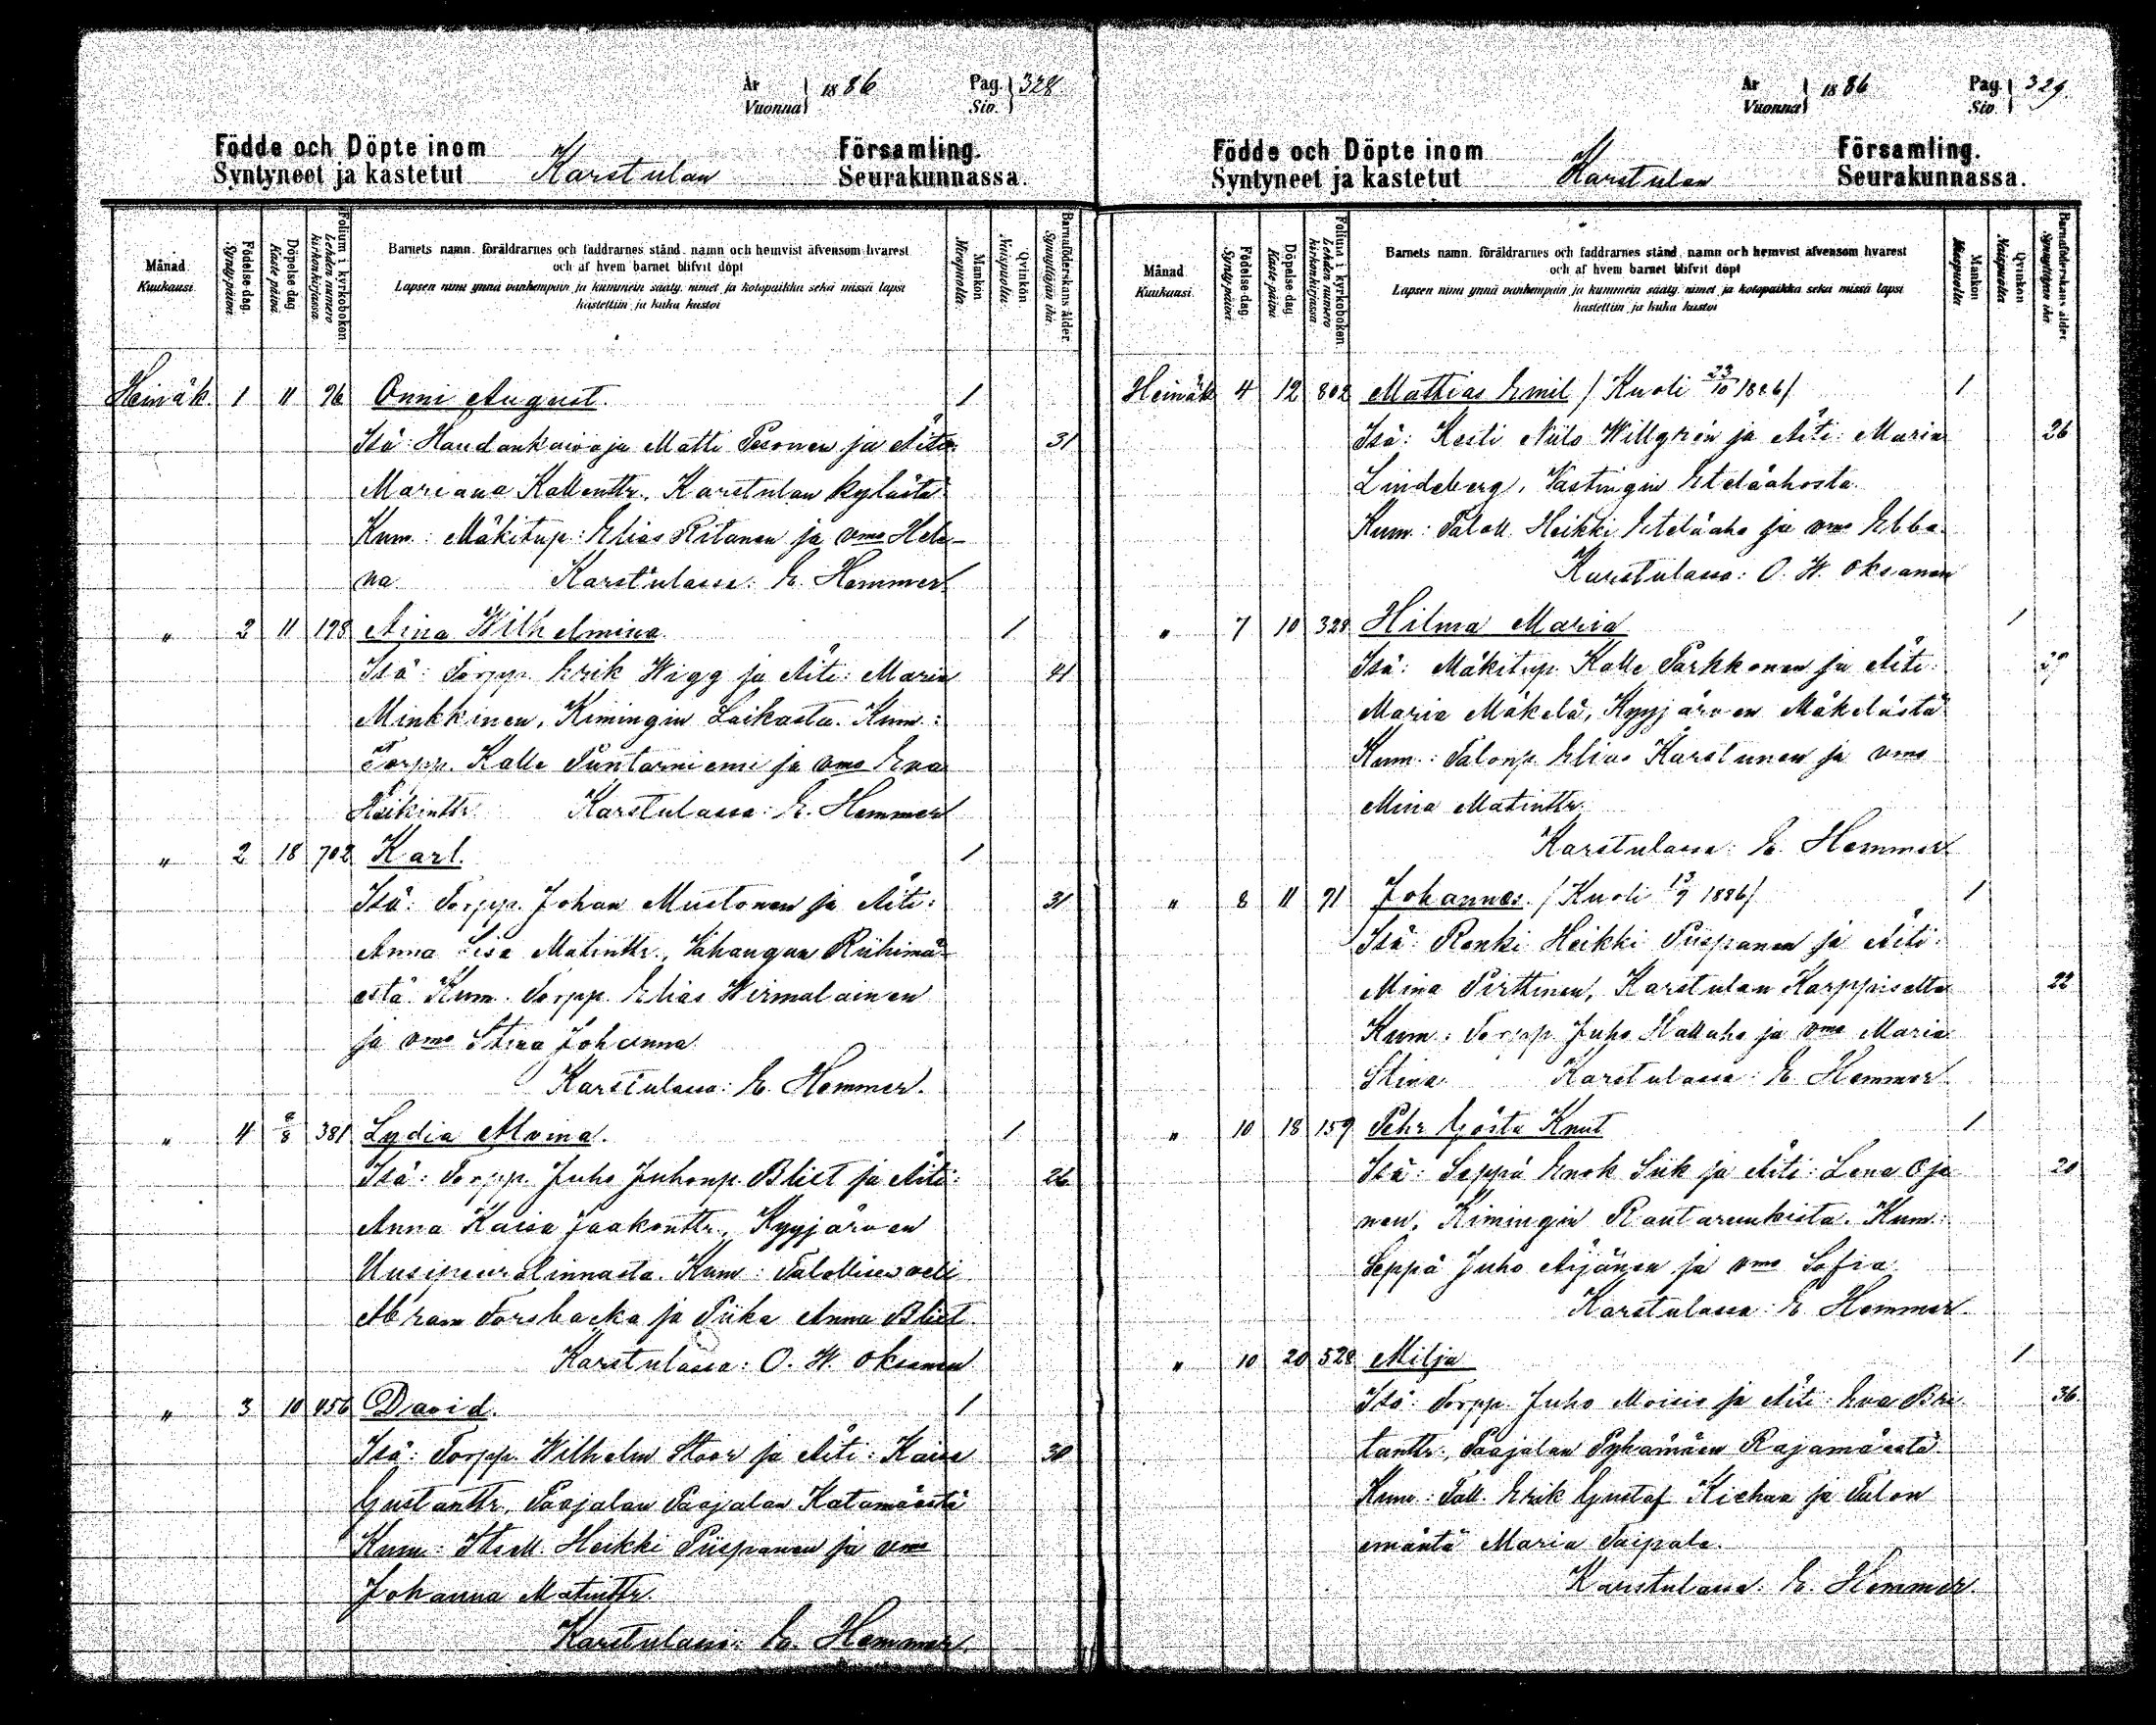 År
Vuonna } 1886 Pag.
Siv. } 328
Födde och Döpte inom Församling.
Syntyneet ja kastetut Karstulan Seurakunnassa.
Månad. Kuukausi.
Födelse-dag. Synty-päivä.
Döpelse-dag. Kaste-päivä.
Folium i kyrkoboken. Lehden numero kirkonkirjassa.
Barnets namn, föräldrarnes och faddrarnes stånd, namn och hemvist äfvensom hvarest
och af hvem barnet blifvit döpt
Lapsen nimi ynnä vanhempain ja kummein sääty, nimet ja kotopaikka sekä missä lapsi
kastettiin ja kuka kastoi
Mankön. Miespuolta.
Qvinkön. Naispuolta.
Barnaföderskans ålder. Synnyttäjän ikä.
Heinäk. 1 11 96 Onni August. 1
Isä: Haudankaivaja Matti Pesonen ja Äiti: 31
Mariana Kallenttr., Karstulan kylästä
Kum.: Mäkitup: Elias Ritanen ja vmo Hele-
na. Karstulassa: E. Hemmer.
" 2 11 198 Aina Wilhelmina 1
Isä: Torpp. Erik Wigg ja Äiti: Maria 41
Minkkinen, Kimingin Laikasta. Kum.:
Torpp. Kalle Puntarniemi ja vmo Eva
Heikinttr. Karstulassa: E. Hemmer
" 2 18 702 Karl. 1
Isä: Torpp. Johan Mustonen ja Äiti: 31
Anna Lisa Matinttr., Vahangan Riihimä-
estä Kum. Torpp. Elias Wirmalainen
ja vmo Stina Johanna
Karstulassa: E. Hemmer.
" 4 8/8 381 Lydia Alvina. 1
Isä: Torpp. Juho Juhonp. Blist ja Äiti: 26
Anna Kaisa Jaakonttr., Kyyjärven
Uusipeuralinnasta. Kum: Talollisen veli
Abram Forsbacka ja Piika Anna Blist.
Karstulassa: O. W. Oksanen
" 3 10 456 David. 1
Isä: Torpp. Wilhelm Stoor ja Äiti: Kaisa 30
Gustanttr., Paajalan Paajalan Katamäestä
Kum: Itsell. Heikki Piispanen ja vmo
Johanna Matinttr.
Karstulassa: E. Hemmer.
År
Vuonna } 1886 Pag.
Siv. } 329.
Födde och Döpte inom Församling.
Syntyneet ja kastetut Karstulan Seurakunnassa.
Månad. Kuukausi.
Födelse-dag. Synty-päivä.
Döpelse-dag. Kaste-päivä.
Folium i kyrkoboken. Lehden numero kirkonkirjassa.
Barnets namn, föräldrarnes och faddrarnes stånd, namn och hemvist äfvensom hvarest
och af hvem barnet blifvit döpt
Lapsen nimi ynnä vanhempain ja kummein sääty, nimet ja kotopaikka sekä missä lapsi
kastettiin ja kuka kastoi
Mankön. Miespuolta.
Qvinkön. Naispuolta.
Barnaföderskans ålder. Synnyttäjän ikä.
Heinäk 4 12 802 Mattias Emil / Kuoli 23/10 1886/ 1
Isä: Kesti Niilo Willgrén ja Äiti: Maria 26
Lindeberg, Vastingin Eteläahosta.
Kum: Taloll. Heikki Eteläaho ja vmo Ebba.
Karstulassa: O. W. Oksanen
" 7 10 328 Hilma Maria 1
Isä: Mäkitup. Kalle Parkkonen ja Äiti:
Maria Mäkelä, Kyyjärven Mäkelästä
Kum: Talonp. Elias Karstunen ja vmo
Mina Matinttr.
Karstulassa: E. Hemmer
" 8 11 91 Johannes. / Kuoli 13/9 1886/ 1
Isä: Renki Heikki Piispanen ja Äiti:
Mina Pirttinen, Karstulan Karppiselta 22
Kum: Torpp. Juho Hallaho ja vmo Maria
Stina Karstulassa: E. Hemmer.
" 10 18 159 Pehr Gösta Knut 1
Isä: Seppä Enok Siik ja Äiti: Lena Oja 20
nen, Kimingin Rautaruukista. Kum:
Seppä Juho Äijänen ja vmo Sofia
Karstulassa: E. Hemmer.
" 10 20 528 Milja 1
Isä: Torpp. Juho Moisio ja Äiti: Eva Bri 36
tanttr., Paajalan Pyhämäen Rajamäestä
Kum: Tall. Erik Gustaf Kichua ja Talon
emäntä Maria Taipale.
Karstulassa: E. Hemmer.